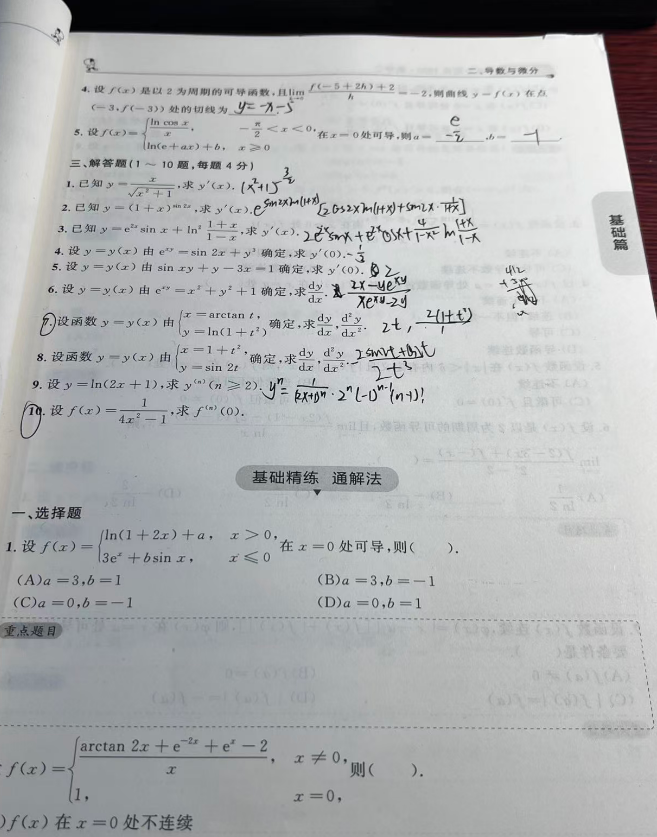 二、导数与微分
4. 设 f(x) 是以 2 为周期的可导函数,且lim f(-5+2h)+2 / h = -2,则曲线 y=f(x) 在点
(-3,f(-3)) 处的切线为 y=-x-5
5. 设 f(x)= { ln cos x / x, -π/2 < x < 0, ln(e+ax)+b, x ≥ 0 在 x=0 处可导,则 a= -e/2 ,b= -1
三、解答题(1~10 题,每题 4 分)
1. 已知 y= x / √(x²+1) ,求 y′(x). (x²+1)^(3/2)
2. 已知 y=(1+x)^(sin 2x) ,求 y′(x). e^(sin2x)ln(1+x) [2cos2x ln(1+x)+sin2x·1/(1+x)]
3. 已知 y=e^(2x) sin x + ln² (1+x)/(1-x) ,求 y′(x). 2e^(2x)sinx+e^(2x)cosx+ 4/(1-x²) ln (1+x)/(1-x)
4. 设 y=y(x) 由 e^(xy)=sin 2x+y³ 确定,求 y′(0). -1/3
5. 设 y=y(x) 由 sin xy+y-3x=1 确定,求 y′(0). 2
6. 设 y=y(x) 由 e^(xy)=x²+y²+1 确定,求 dy/dx. (2x-ye^(xy))/(xe^(xy)-2y)
7. 设函数 y=y(x) 由 { x=arctan t, y=ln(1+t²) 确定,求 dy/dx, d²y/dx². 2t, 2(1+t²)/1
8. 设函数 y=y(x) 由 { x=1+t², y=sin 2t 确定,求 dy/dx, d²y/dx².
9. 设 y=ln(2x+1),求 y^(n)(n ≥ 2). yⁿ= 1/(2x+1)ⁿ · 2ⁿ (-1)^(n-1) (n-1)!
10. 设 f(x)= 1/(4x²-1) ,求 f^(n)(0).
基础篇
基础精练 通解法
一、选择题
1. 设 f(x)= { ln(1+2x)+a, x > 0, 3e^x+bsin x, x ≤ 0 在 x=0 处可导,则( ).
(A)a=3,b=1 (B)a=3,b=-1
(C)a=0,b=-1 (D)a=0,b=1
重点题目
f(x)= { (arctan 2x+e^(-2x)+e^x-2) / x, x ≠ 0, 1, x=0, 则( ).
)f(x) 在 x=0 处不连续